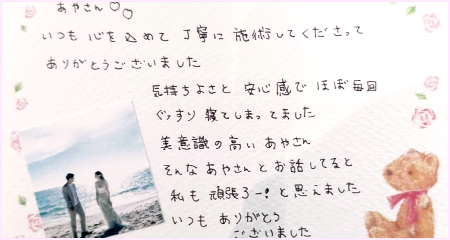 あやさん♡♡
いつも 心を込めて 丁寧に 施術してくださって
ありがとうございました
気持ちよさと 安心感で ほぼ毎回
ぐっすり 寝てしまってました
美意識の高い あやさん
そんな あやさんと お話してると
私も 頑張ろー! と思えました
いつも ありがとう
ございました